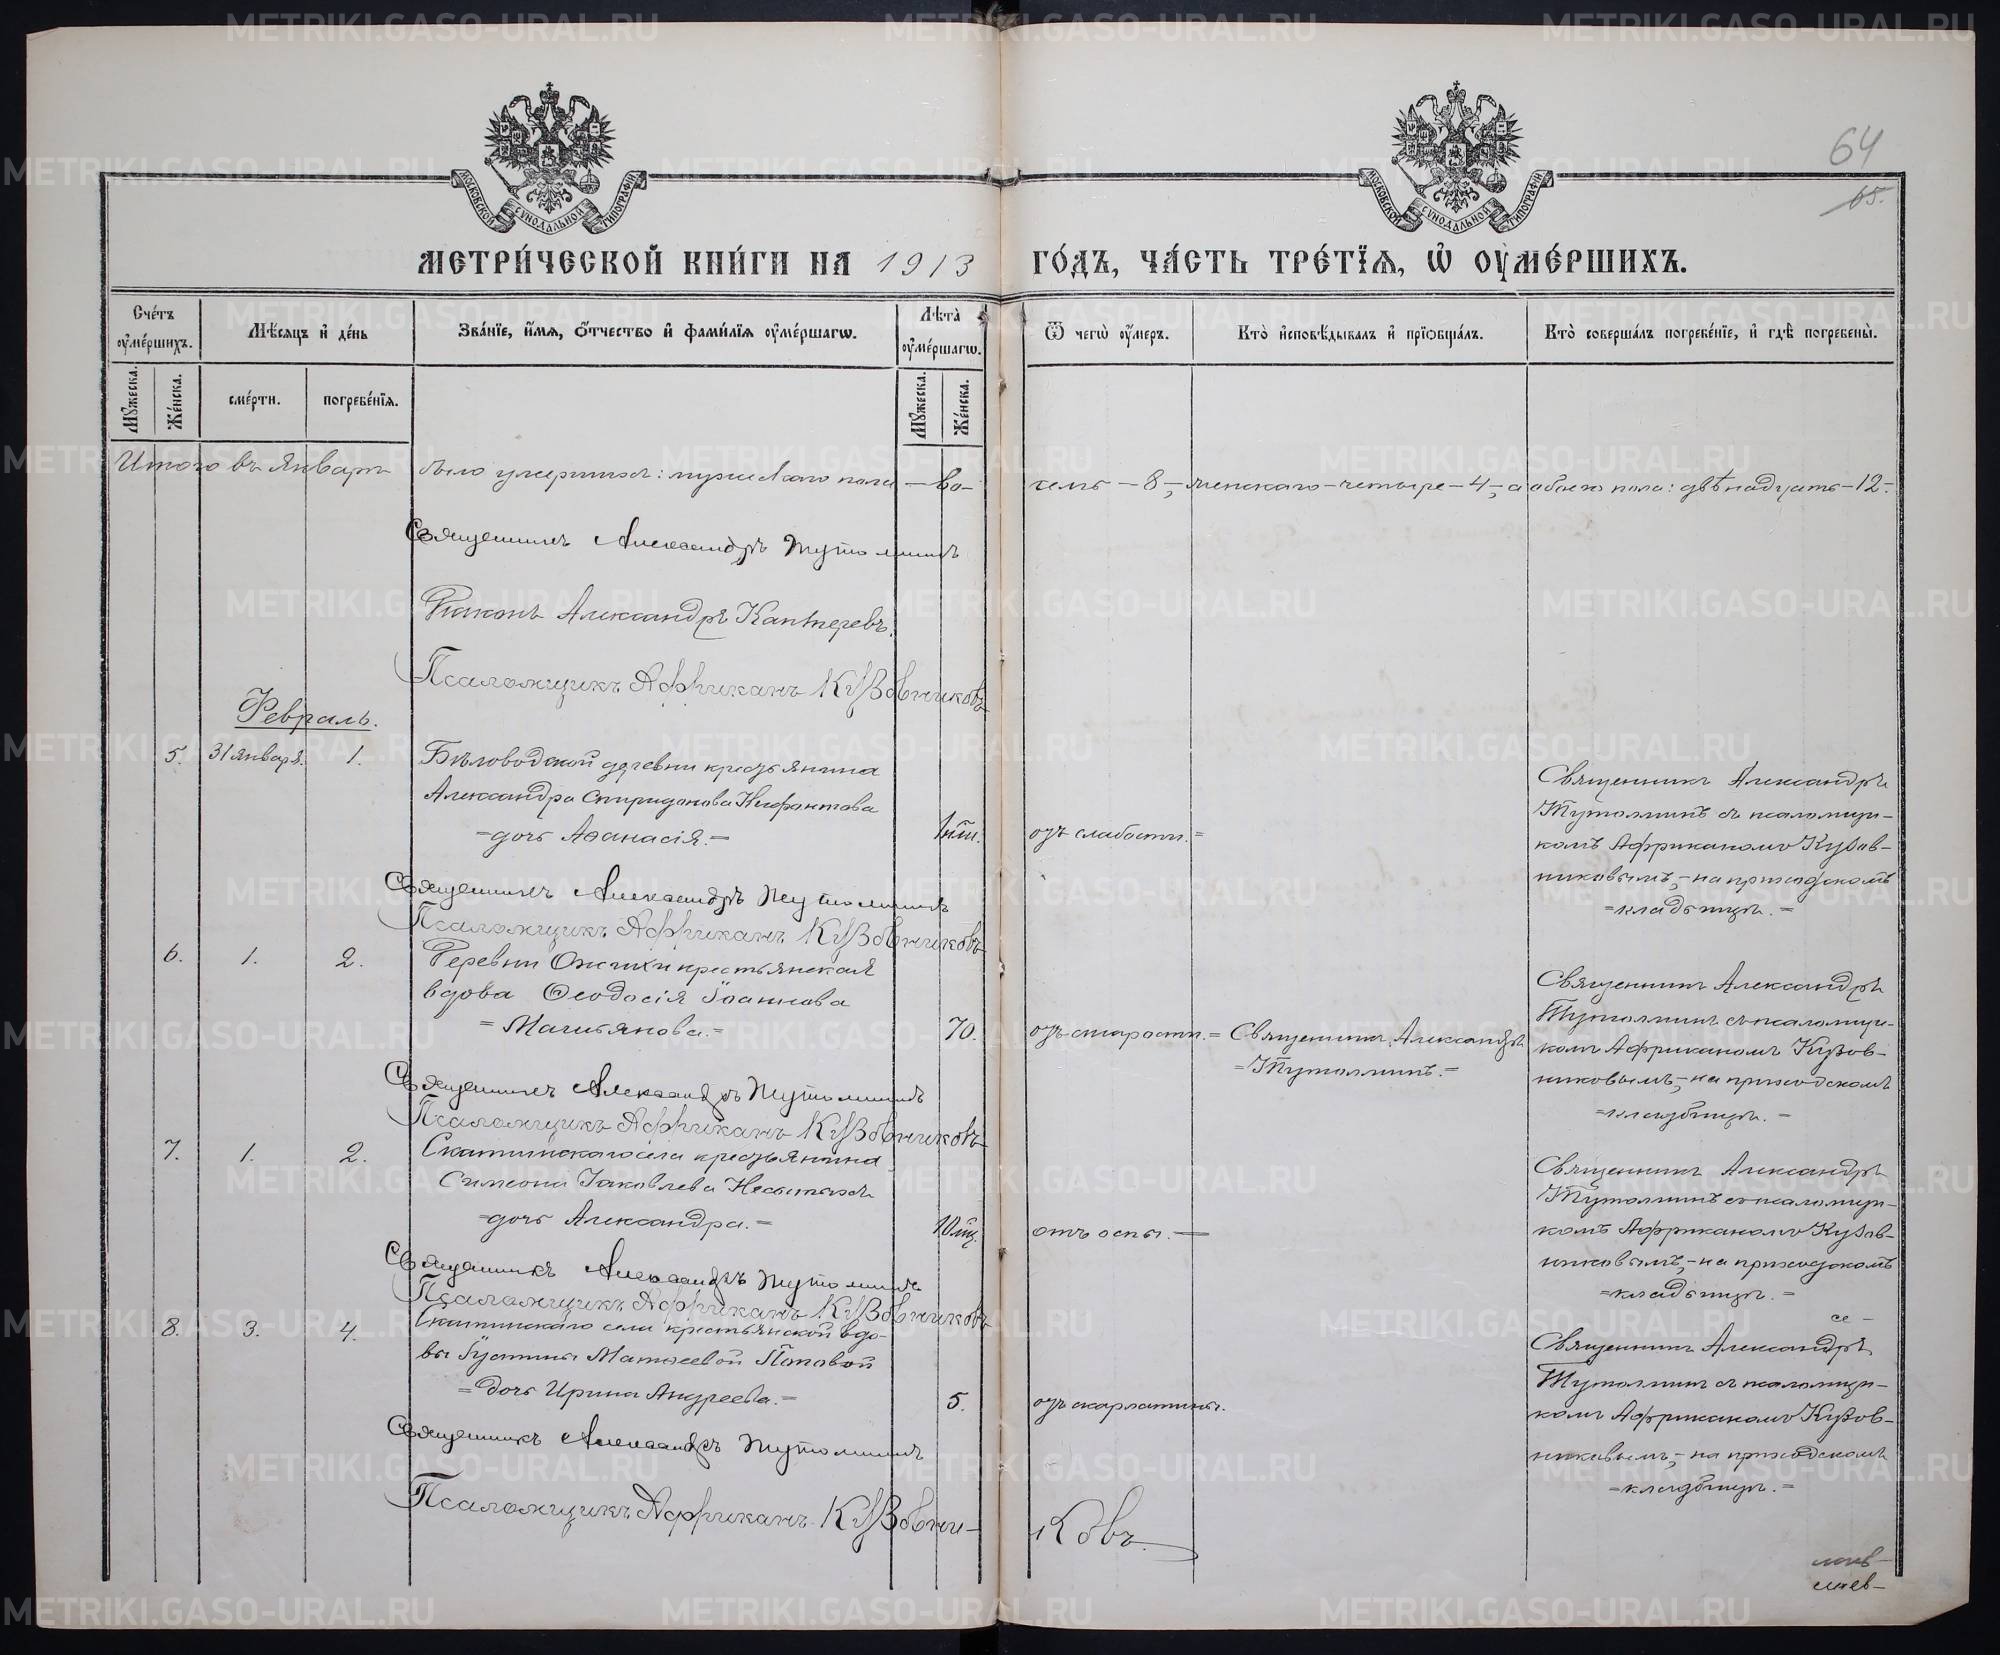 64
65.
МОСКОВСКОЙ СѴНОДАЛЬНОЙ ТИПОГРАФІИ
МОСКОВСКОЙ СѴНОДАЛЬНОЙ ТИПОГРАФІИ
МЕТРИ́ЧЕСКОЙ КНИ́ГИ НА 1913 ГО́ДЪ, ЧА́СТЬ ТРЕ́ТЇѦ, Ѡ҆ ОУ҆МЕ́РШИХЪ.
Сче́тъ оу҆ме́ршихъ.
Мѣ́сяцъ и҆ де́нь
Зва́нїе, и҆́мѧ, ѻ҆́тчество и҆ фами́лїѧ оу҆ме́ршагѡ.
Лѣта̀ оу҆ме́ршагѡ.
Ѿ чегѡ̀ оу҆́меръ.
Кто̀ и҆сповѣ́дывалъ и҆ прїѡбща́лъ.
Кто̀ соверша́лъ погребе́нїе, и҆ гдѣ̀ погребены̀.
Мꙋ́жеска.
Же́нска.
сме́рти.
погребе́нїѧ.
Мꙋ́жеска.
Же́нска.
Итого въ Январѣ было умершихъ: мужескаго пола — во-
семь — 8,- женскаго - четыре - 4,- а обоего пола: двѣнадцать - 12.-
Священникъ Александръ Тутолминъ
Діаконъ Александръ Каптеревъ.
Псаломщикъ Африканъ Кузовниковъ
Февраль.
5. 31 января. 1. Бѣловодской деревни крестьянина
Александра Спиридонова Нифантова
=дочь Аѳанасія.=
1 отъ слабости.=
Священникъ Александръ
Тутолминъ съ псаломщи-
комъ Африканомъ Кузов-
никовымъ,- на приходскомъ
=кладбищѣ.=
Священникъ Александръ Тутолминъ
Псаломщикъ Африканъ Кузовниковъ
6. 1. 2. Деревни крестьянская
вдова Ѳеодосія Іоаннова
=
70. отъ старости.= Священникъ Александръ
=Тутолминъ.=
Священникъ Александръ
Тутолминъ съ псаломщи-
комъ Африканомъ Кузов-
никовымъ,- на приходскомъ
=кладбищѣ.=
Священникъ Александръ Тутолминъ
Псаломщикъ Африканъ Кузовниковъ
7. 1. 2. Скатинскаго села крестьянина
Симеона Іаковлева Несытыхъ
=дочь Александра.=
10 мѣс. отъ оспы. —
Священникъ Александръ
Тутолминъ съ псаломщи-
комъ Африканомъ Кузов-
никовымъ,- на приходскомъ
=кладбищѣ.=
Священникъ Александръ Тутолминъ
Псаломщикъ Африканъ Кузовниковъ
8. 3. 4. Скатинскаго села крестьянской вдо-
вы Іустины Матѳеевой Поповой
=дочь Ирина Андреева.=
5. отъ скарлатины.
се-
Священникъ Александръ
Тутолминъ съ псаломщи-
комъ Африканомъ Кузов-
никовымъ,- на приходскомъ
=кладбищѣ.=
Священникъ Александръ Тутолминъ
Псаломщикъ Африканъ Кузовни-
ковъ.
METRIKI.GASO-URAL.RU